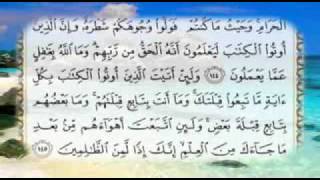 الْحَرَامِ ۚ وَحَيْثُ مَا كُنتُمْ فَوَلُّوا۟ وُجُوهَكُمْ شَطْرَهُۥ ۗ وَإِنَّ الَّذِينَ
أُوتُوا۟ الْكِتَٰبَ لَيَعْلَمُونَ أَنَّهُ الْحَقُّ مِن رَّبِّهِمْ ۗ وَمَا اللَّهُ بِغَٰفِلٍ
عَمَّا يَعْمَلُونَ ١٤٤ وَلَئِنْ أَتَيْتَ الَّذِينَ أُوتُوا۟ الْكِتَٰبَ بِكُلِّ
ءَايَةٍ مَّا تَبِعُوا۟ قِبْلَتَكَ ۚ وَمَا أَنتَ بِتَابِعٍ قِبْلَتَهُمْ ۚ وَمَا بَعْضُهُم
بِتَابِعٍ قِبْلَةَ بَعْضٍ ۚ وَلَئِنِ اتَّبَعْتَ أَهْوَاءَهُم مِّن بَعْدِ
مَا جَاءَكَ مِنَ الْعِلْمِ ۙ إِنَّكَ إِذًا لَّمِنَ الظَّٰلِمِينَ ١٤٥